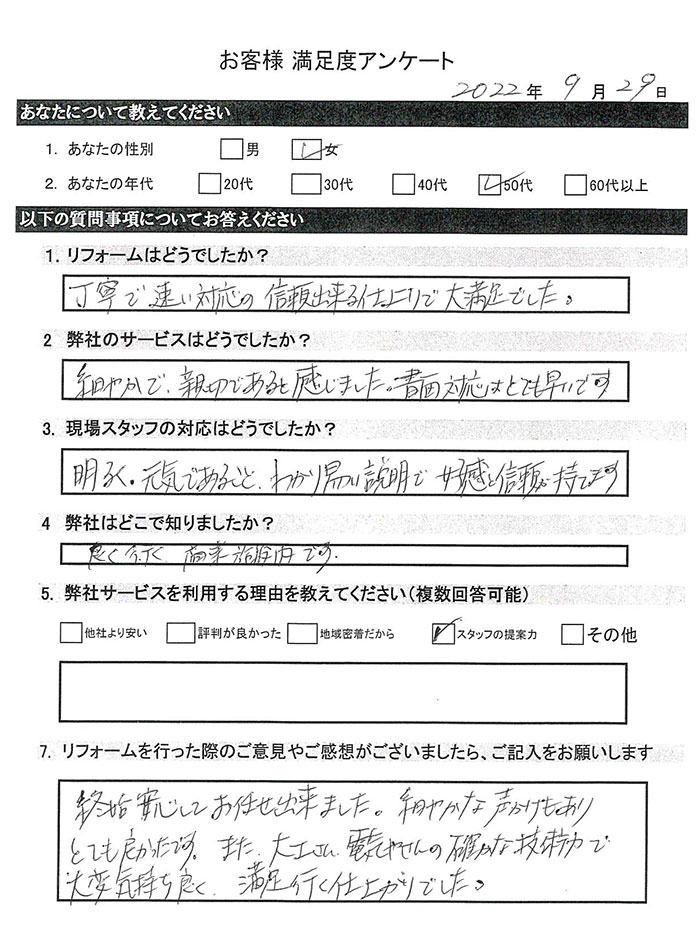 お客様 満足度アンケート
2022年 9月 29日
あなたについて教えてください
1. あなたの性別 男 女
2. あなたの年代 20代 30代 40代 50代 60代以上
以下の質問事項についてお答えください
1. リフォームはどうでしたか?
丁寧で速い対応の信頼出来る仕上りで大満足でした。
2 弊社のサービスはどうでしたか?
細やかで、親切であると感じました。書面対応はとても早いです
3. 現場スタッフの対応はどうでしたか?
明るく。元気であること、わかり易い説明で好感と信頼が持てます
4 弊社はどこで知りましたか?
良く行く 商業施設内です.
5. 弊社サービスを利用する理由を教えてください(複数回答可能)
他社より安い 評判が良かった 地域密着だから スタッフの提案力 その他
7. リフォームを行った際のご意見やご感想がございましたら、ご記入をお願いします
終始安心してお任せ出来ました。細やかな声かけもあり
とても良かったです。また、大工さん、電気やさんの確かな技術力で
大変気持ち良く、満足行く仕上がりでした。